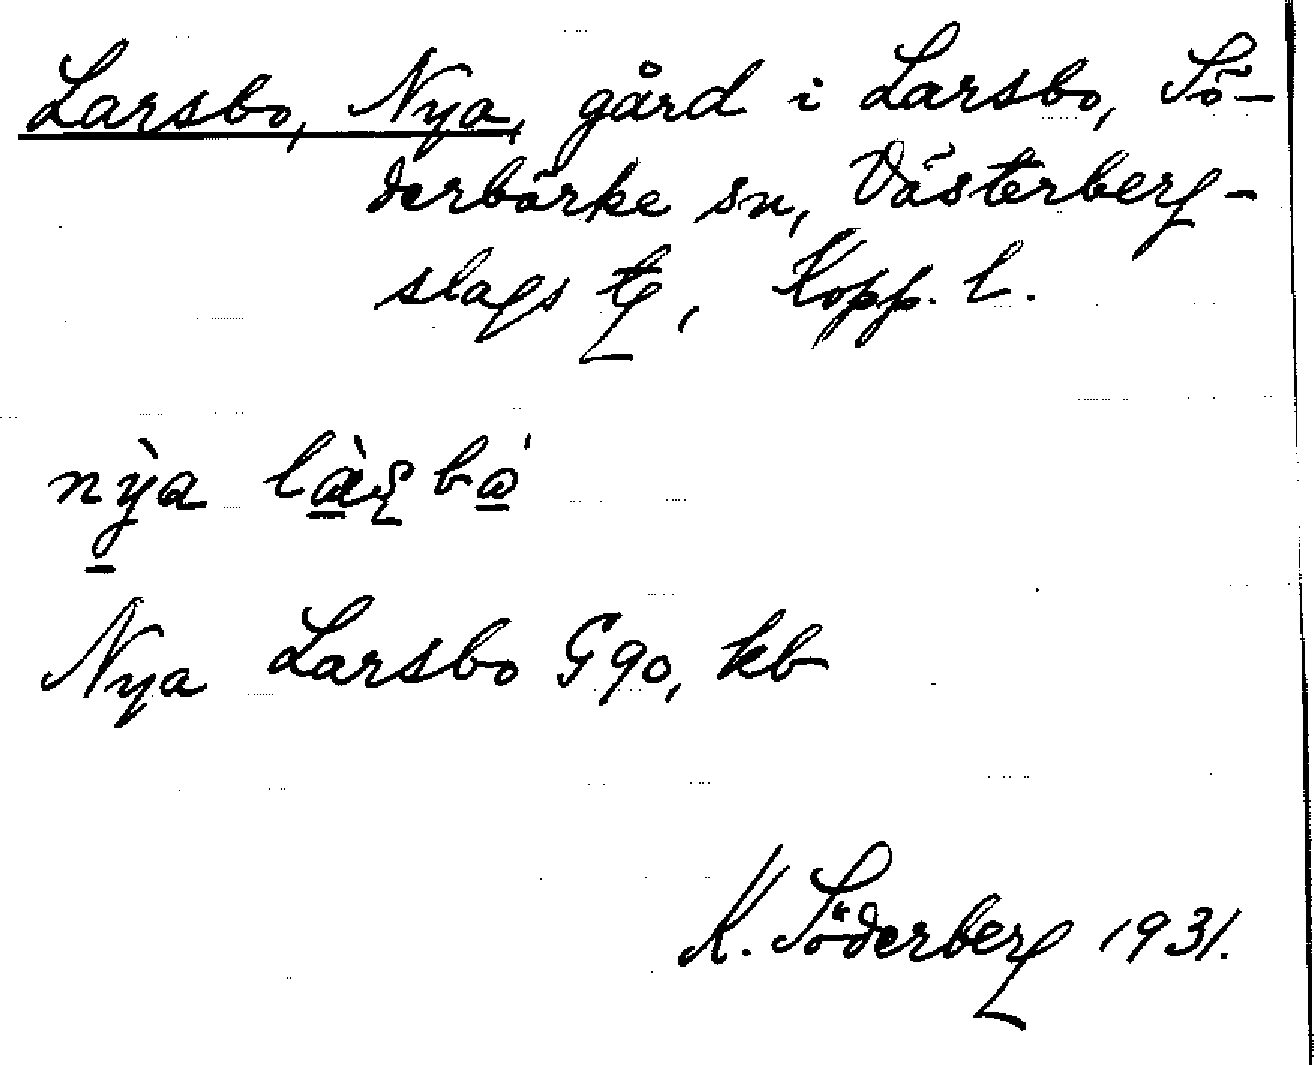 Larsbo, Nya, gård i Larsbo, Sö-
derbärke sn, Västerberg-
slags tg, Kopp. l.
nỳa
Nya Larsbo G90, kb
K. Söderberg 1931.